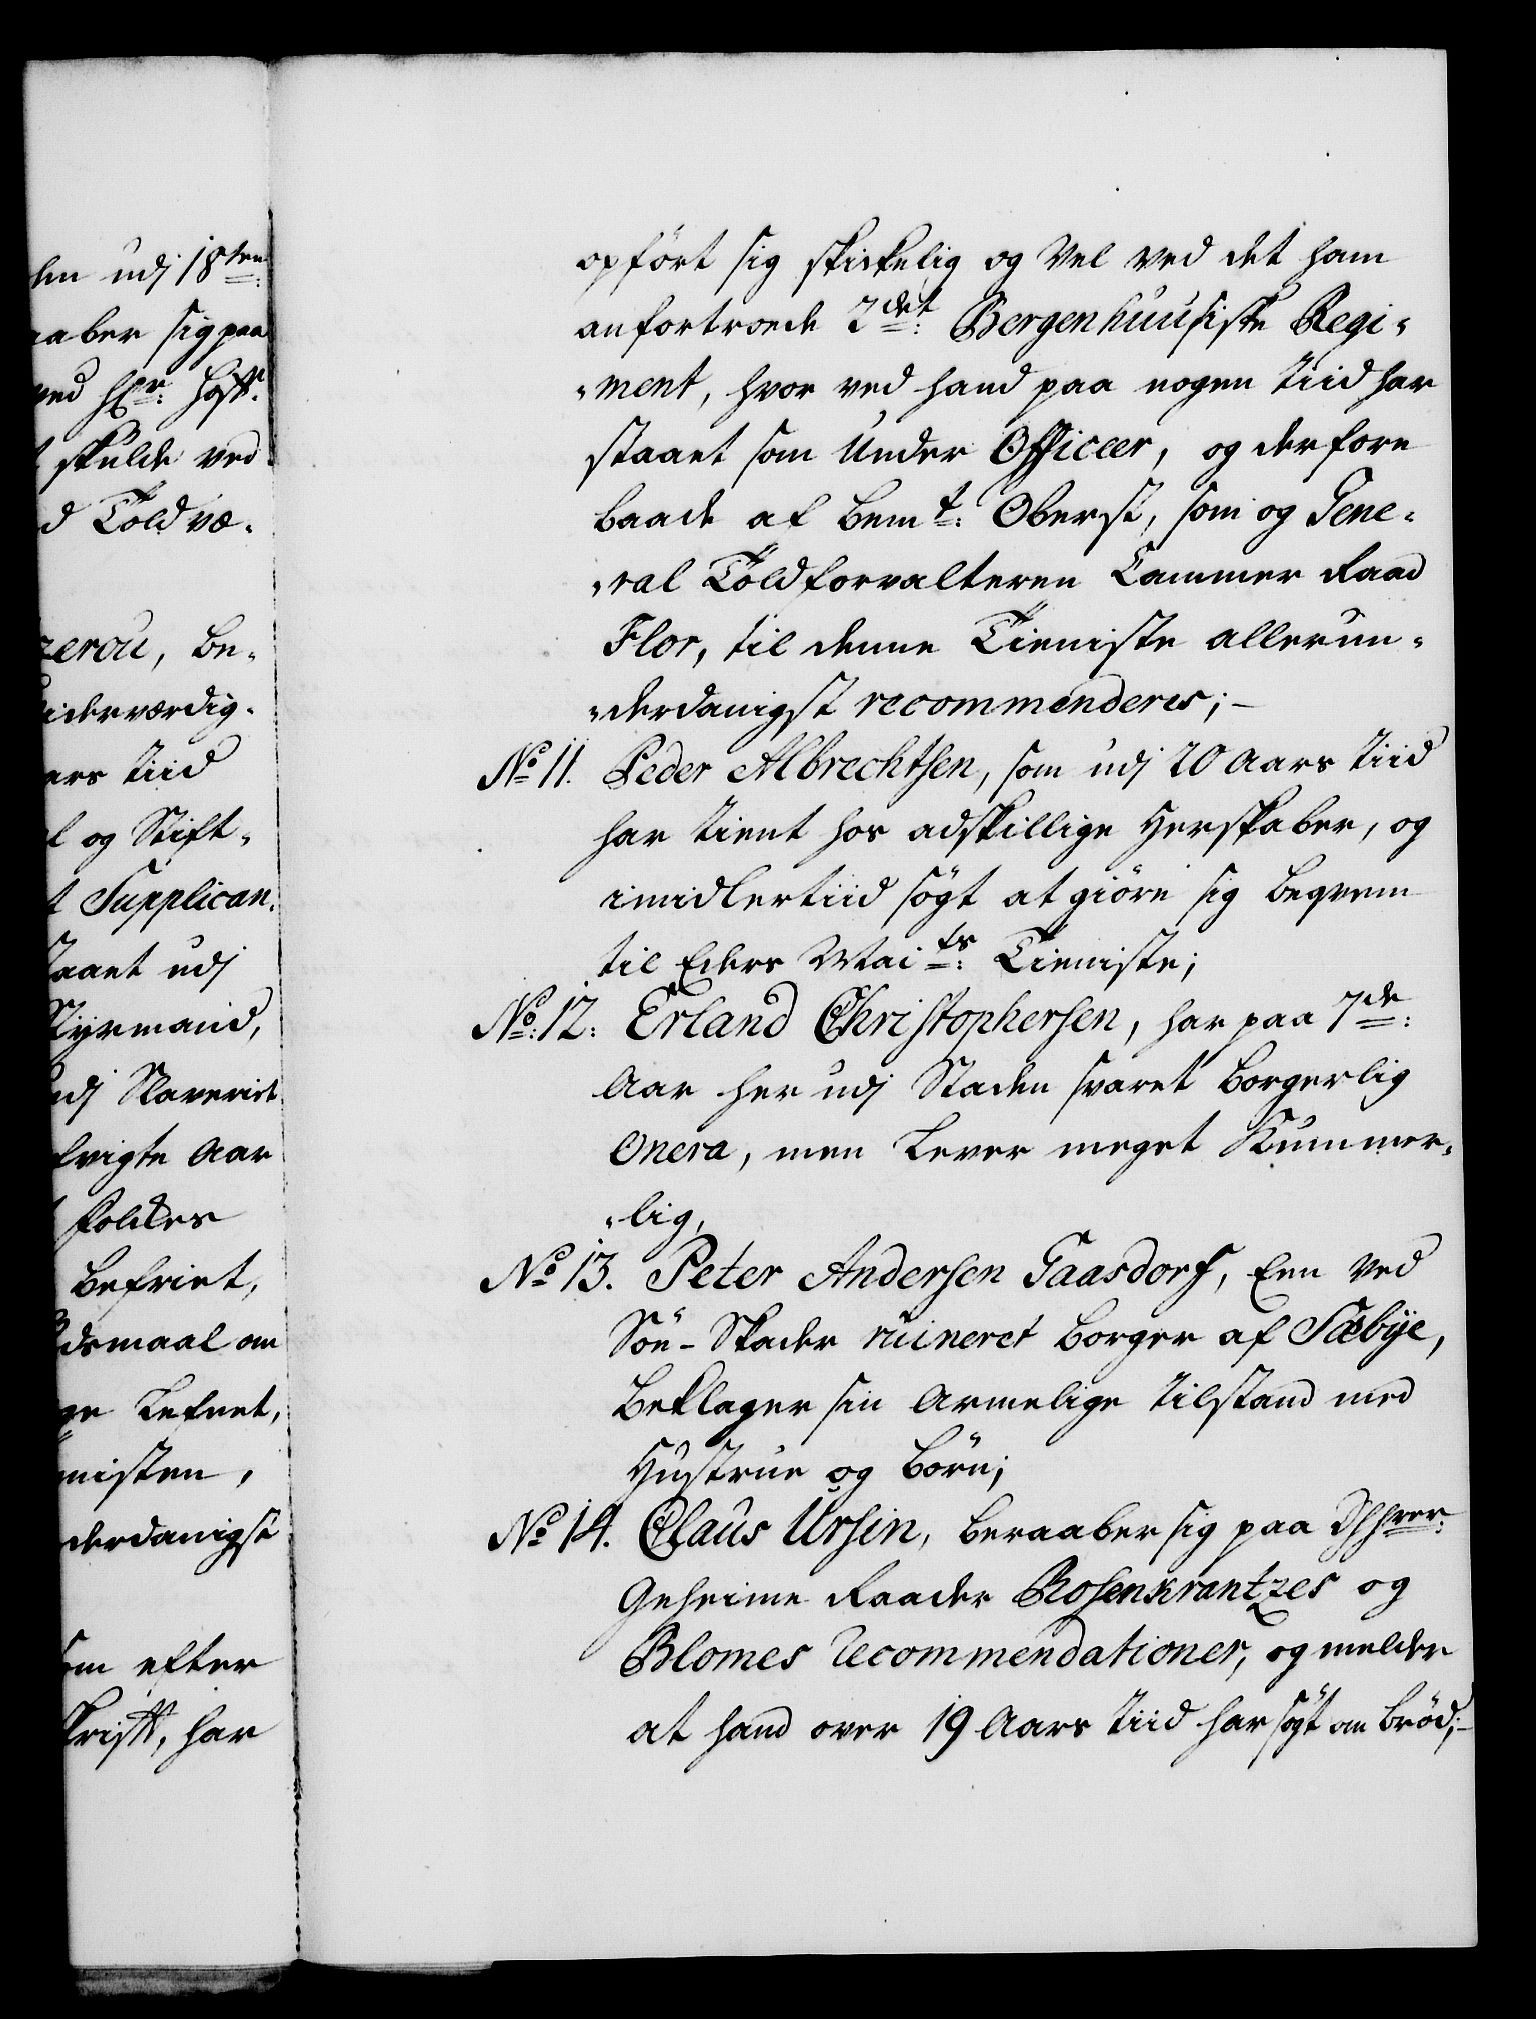 len udj 18ten:
aaber sig paa
ved
t skulde ved
d Told væ-
zerou, be-
iderværdig-
ars tiid
l og Stift-
t Supplican-
taaet udj
Styrmand,
udj Slaveriet
Aar
befriet,
dsmaal om
nisten,
derdanigst
som efter
har
opført sig skickelig og vel ved det ham
anfortroede 2det: Bergenhuusiske Regi-
-ment, hvor ved hand paa nogen tiid har
staaet som Under Officeer, og derfore
baade af bemt: Oberst, som og Gene-
-ral Toldforvalteren Cammer Raad
Flor, til denne Tieniste allerun-
-derdanigst recommenderes;-
No 11. Peder Albrechtsen, som udj 20 Aars tiid
har tient hos adskillige Herskaber, og
imidlertiid søgt at giøre sig beqvem
til Eders Maits: Tieniste;
No: 12: Erland Christophersen, har paa 7de:
Aar her udj Staden svaret borgerlig
Onera, men lever meget Kummer-
-lig,
No 13. Peter Andersen Gaasdorf, Een ved
Söe-Skader ruineret borger af Sæbye,
beklager sin Armelige tilstand med
Hustrue og börn;
No 14. Claus Ursin, beraaber sig paa Dhhrer:
Geheime Raader Rosenkrantzes og
Blomes recommendationer, og melder
at hand over 19 Aars tiid har søgt om brød;-